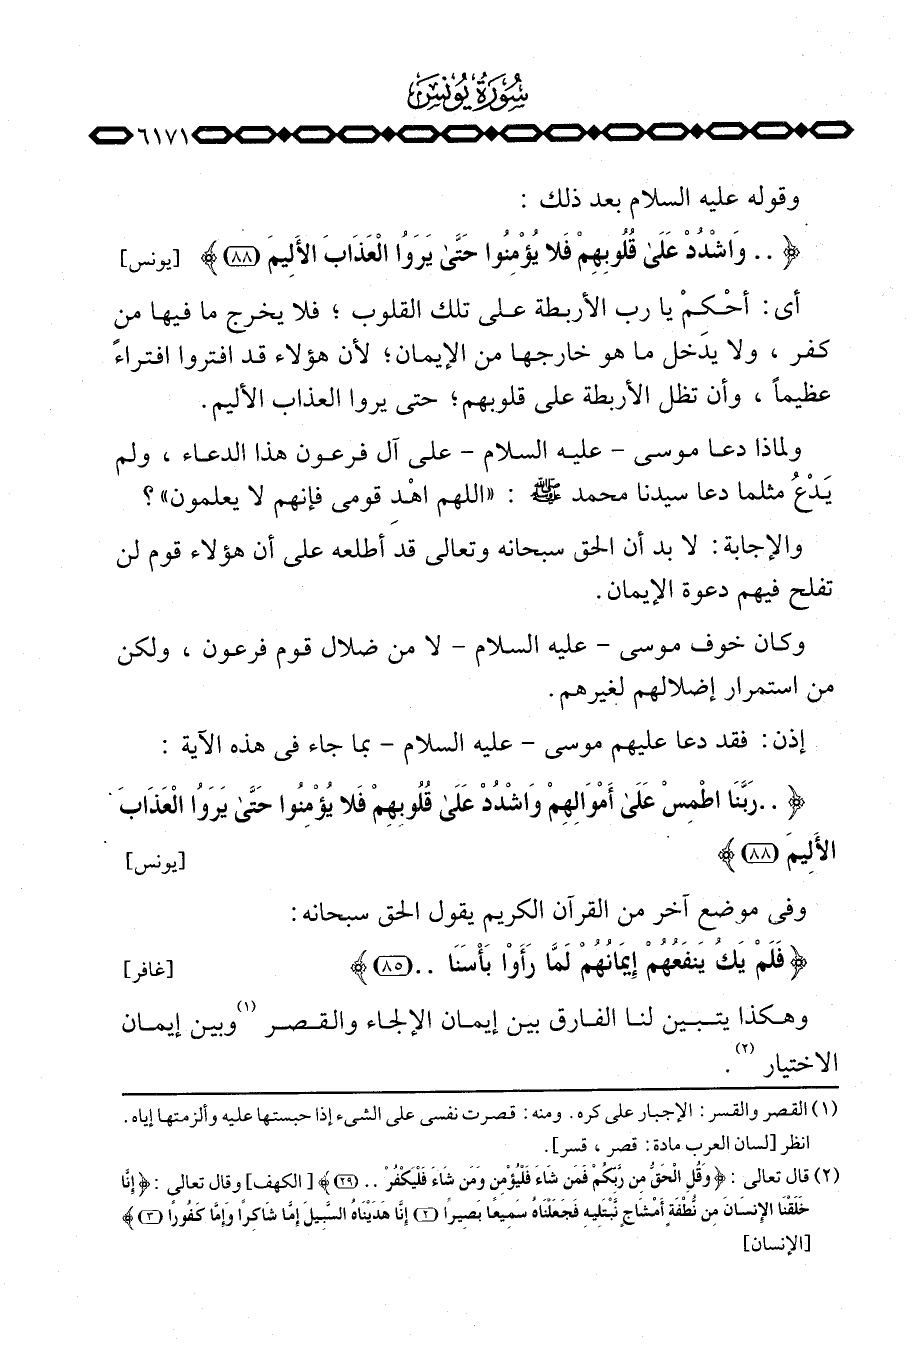 سُورَةُ يُونُسَ
٦١٧١
وقوله عليه السلام بعد ذلك :
﴿ .. وَاشْدُدْ عَلَىٰ قُلُوبِهِمْ فَلا يُؤْمِنُوا حَتَّىٰ يَرَوُا الْعَذَابَ الأَلِيمَ (٨٨) ﴾ [يونس]
أى : أحْكمْ يا رب الأربطة على تلك القلوب ؛ فلا يخرج ما فيها من
كفر ، ولا يدَخل ما هو خارجها من الإيمان؛ لأن هؤلاء قد افتروا افتراءً
عظيماً ، وأن تظل الأربطة على قلوبهم؛ حتى يروا العذاب الأليم.
ولماذا دعا موسى – عليه السلام – على آل فرعون هذا الدعاء ، ولم
يَدْعُ مثلما دعا سيدنا محمد ﷺ : «اللهم اهْدِ قومى فإنهم لا يعلمون» ؟
والإجابة : لا بد أن الحق سبحانه وتعالى قد أطلعه على أن هؤلاء قوم لن
تفلح فيهم دعوة الإيمان.
وكان خوف موسى – عليه السلام – لا من ضلال قوم فرعون ، ولكن
من استمرار إضلالهم لغيرهم.
إذن : فقد دعا عليهم موسى – عليه السلام – بما جاء فى هذه الآية :
﴿ ..رَبَّنَا اطْمِسْ عَلَىٰ أَمْوَالِهِمْ وَاشْدُدْ عَلَىٰ قُلُوبِهِمْ فَلا يُؤْمِنُوا حَتَّىٰ يَرَوُا الْعَذَابَ
الأَلِيمَ (٨٨) ﴾ [يونس]
وفى موضع آخر من القرآن الكريم يقول الحق سبحانه :
﴿ فَلَمْ يَكُ يَنفَعُهُمْ إِيمَانُهُمْ لَمَّا رَأَوْا بَأْسَنَا ..(٨٥) ﴾ [غافر]
وهكذا يتبين لنا الفارق بين إيمان الإلجاء والقصر (١) وبين إيمان
الاختيار (٢) .
(١) القصر والقسر : الإجبار على كره. ومنه : قصرت نفسى على الشىء إذا حبستها عليه وألزمتها إياه.
انظر [لسان العرب مادة : قصر ، قسر].
(٢) قال تعالى : ﴿ وَقُلِ الْحَقُّ مِن رَّبِّكُمْ فَمَن شَاءَ فَلْيُؤْمِن وَمَن شَاءَ فَلْيَكْفُرْ .. (٢٩) ﴾ [ الكهف] وقال تعالى : ﴿ إِنَّا
خَلَقْنَا الإِنسَانَ مِن نُّطْفَةٍ أَمْشَاجٍ نَّبْتَلِيهِ فَجَعَلْنَاهُ سَمِيعًا بَصِيرًا (٢) إِنَّا هَدَيْنَاهُ السَّبِيلَ إِمَّا شَاكِرًا وَإِمَّا كَفُورًا (٣) ﴾
[الإنسان]